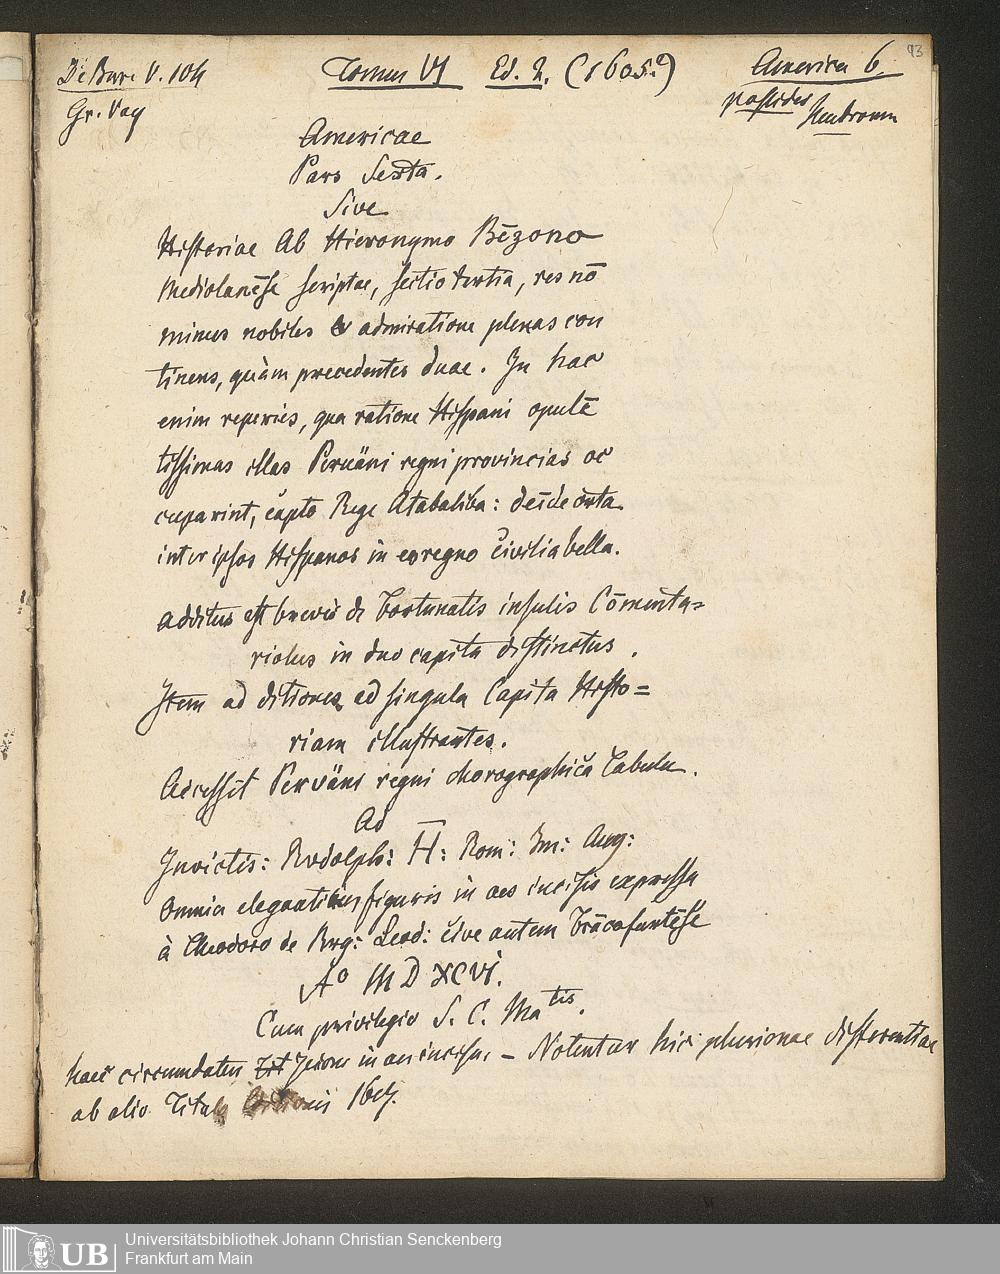 De Bure V. 104
Tomus VI Ed. 2. (1605.?)
America 6.
93
Gr. Voy
Americae
Pars Sexta.
Sive
Historiae Ab Hieronymo Bēzono
Mediolanēse scriptae, sectio tertia, res nō
minus nobiles & admiratione plenas con
tinens, quàm praecedentes duae. In hac
enim reperies, qua ratione Hispani opulē
tissimas illas Peruäni regni provincias oc
cuparint, capto Rege Atabaliba: deīde orta
inter ipsos Hispanos in eo regno civilia bella.
additus est brevis de Fortunatis insulis Cōmenta=
riolus in duo capita distinctus.
Item additiones ad singula Capita Histo=
riam illustrantes.
Accessit Peruäni regni chorographica Tabula.
Ad
Invictis: Rudolph: II: Rom: Im: Aug:
Omnia elegantibus figuris in aes incisis expressa
à Theodoro de Bry: Leod: cive autem Frācofurtēse
Aº MDXCVI.
Cum privilegio S. C. Matis.
haec circumdates Tit Icones in aes incisa. – Notentur hic differentiae
ab alio Titulo Editionis
Universitätsbibliothek Johann Christian Senckenberg
Frankfurt am Main
UB